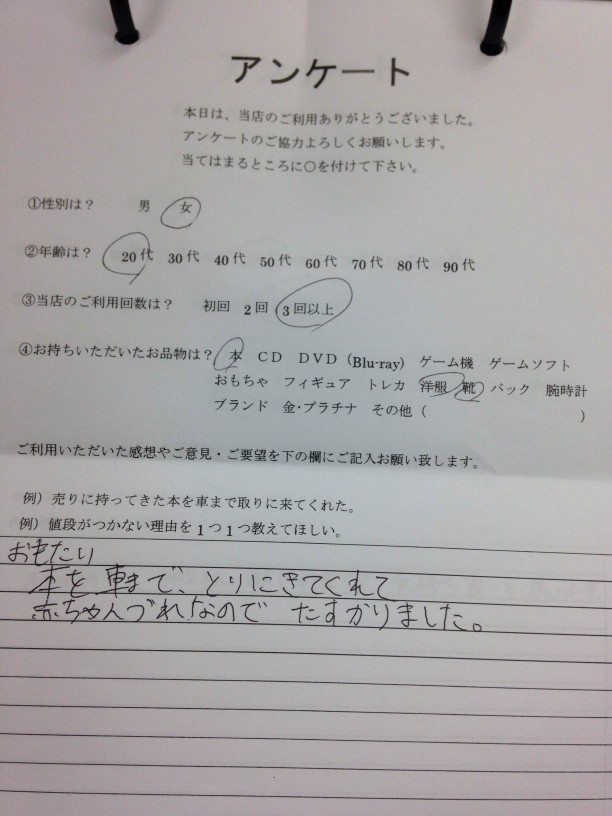 アンケート
本日は、当店のご利用ありがとうございました。
アンケートのご協力よろしくお願いします。
当てはまるところに○を付けて下さい。
①性別は？ 男 女
②年齢は？ 20代 30代 40代 50代 60代 70代 80代 90代
③当店のご利用回数は？ 初回 2回 3回以上
④お持ちいただいたお品物は？ 本 CD DVD（Blu-ray） ゲーム機 ゲームソフト
おもちゃ フィギュア トレカ 洋服 靴 バック 腕時計
ブランド 金・プラチナ その他（ ）
ご利用いただいた感想やご意見・ご要望を下の欄にご記入お願い致します。
例）売りに持ってきた本を車まで取りに来てくれた。
例）値段がつかない理由を1つ1つ教えてほしい。
おもたい
本を車まで、とりにきてくれて
赤ちゃんづれなので たすかりました。